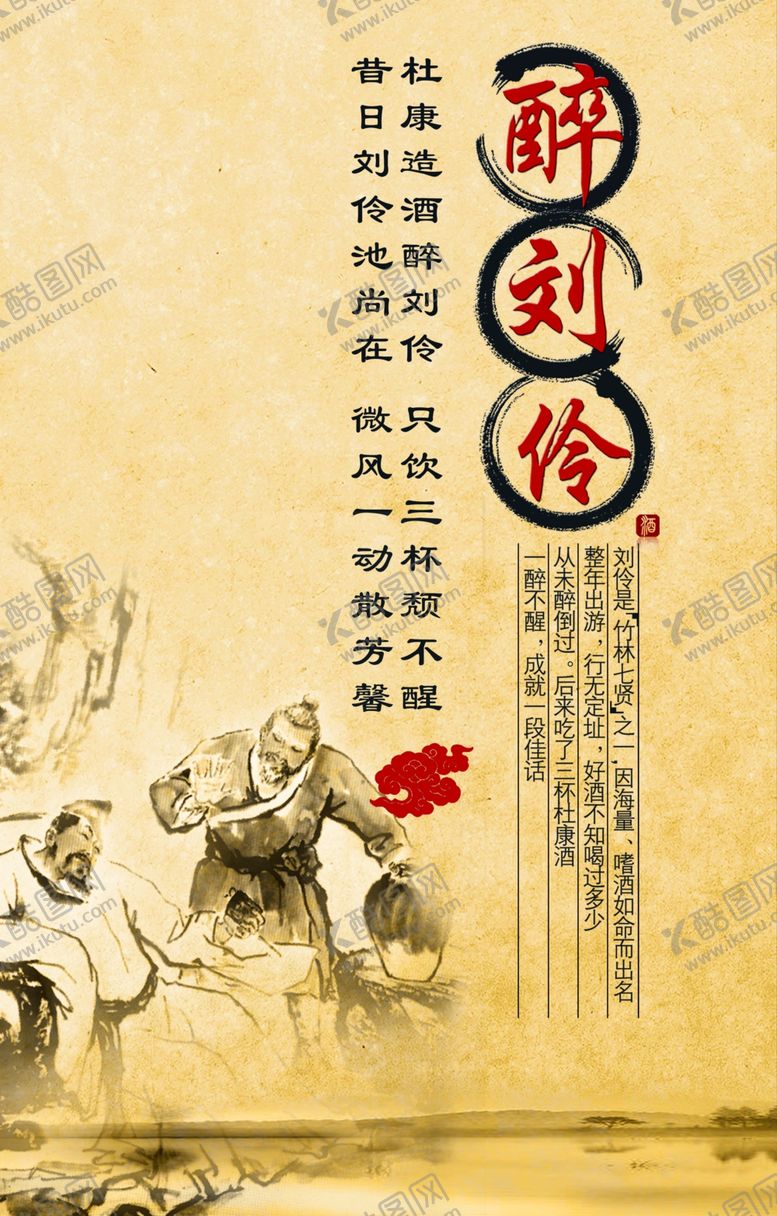 醉刘伶
酒
杜康造酒醉刘伶 只饮三杯颓不醒
昔日刘伶池尚在 微风一动散芳馨
刘伶是“竹林七贤”之一,因海量、嗜酒如命而出名
整年出游,行无定址,好酒不知喝过多少
从未醉倒过。后来吃了三杯杜康酒
一醉不醒,成就一段佳话
酷图网
www.ikutu.com